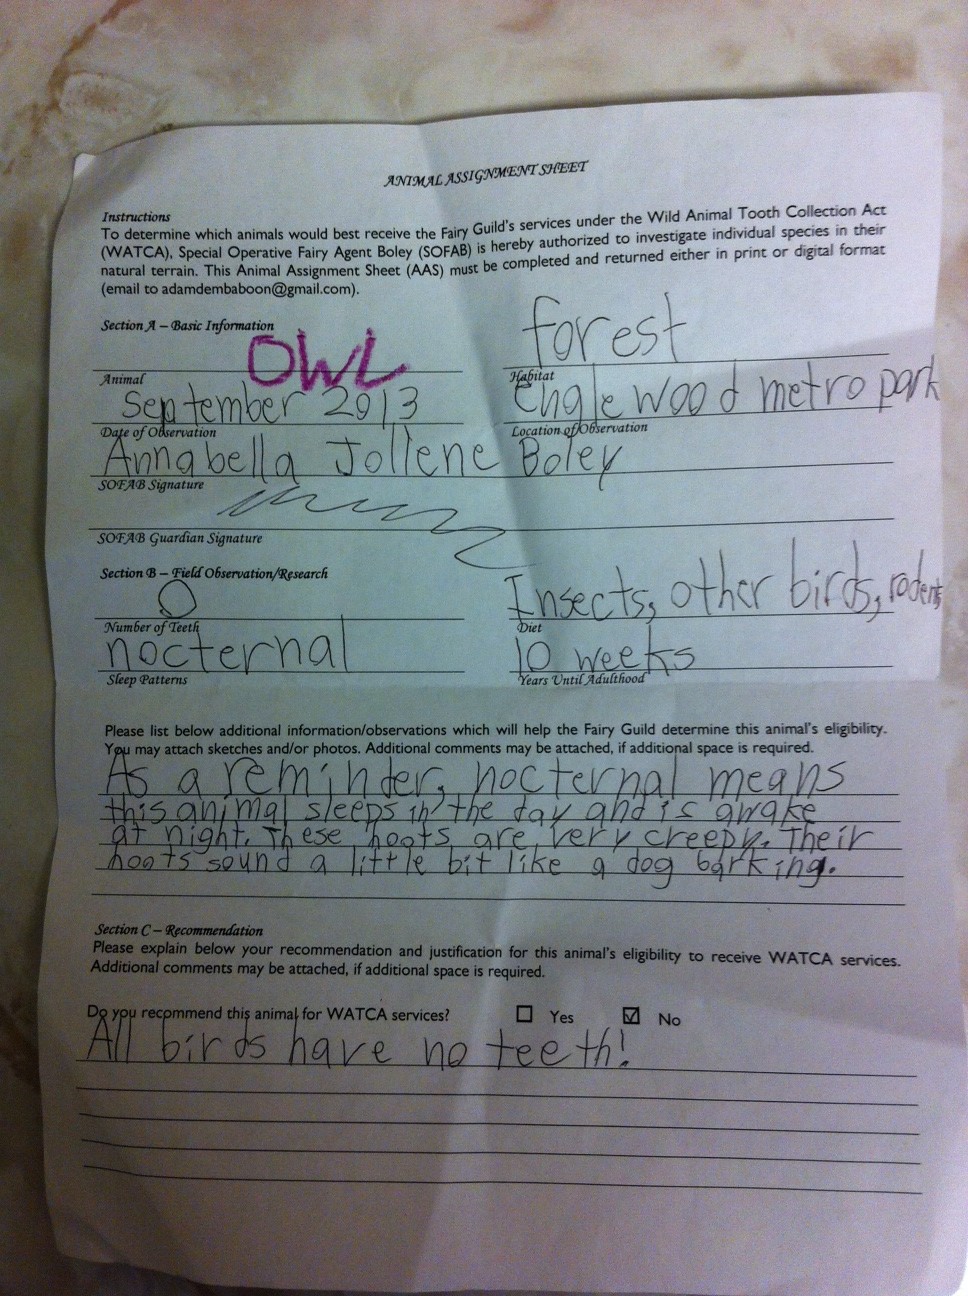 ANIMAL ASSIGNMENT SHEET
Instructions
To determine which animals would best receive the Fairy Guild's services under the Wild Animal Tooth Collection Act
(WATCA), Special Operative Fairy Agent Boley (SOFAB) is hereby authorized to investigate individual species in their
natural terrain. This Animal Assignment Sheet (AAS) must be completed and returned either in print or digital format
(email to adamdembaboon@gmail.com).
Section A – Basic Information
OWL forest
Animal Habitat
September 2013 Englewood metro park
Date of Observation Location of Observation
Annabella Jollene Boley
SOFAB Signature
SOFAB Guardian Signature
Section B – Field Observation/Research
0 Insects, other birds, rodents
Number of Teeth Diet
nocternal 10 weeks
Sleep Patterns Years Until Adulthood
Please list below additional information/observations which will help the Fairy Guild determine this animal's eligibility.
You may attach sketches and/or photos. Additional comments may be attached, if additional space is required.
As a reminder, nocternal means
this animal sleeps in the day and is awake
at night. These hoots are very creepy. Their
hoots sound a little bit like a dog barking.
Section C – Recommendation
Please explain below your recommendation and justification for this animal's eligibility to receive WATCA services.
Additional comments may be attached, if additional space is required.
Do you recommend this animal for WATCA services? Yes No
All birds have no teeth!